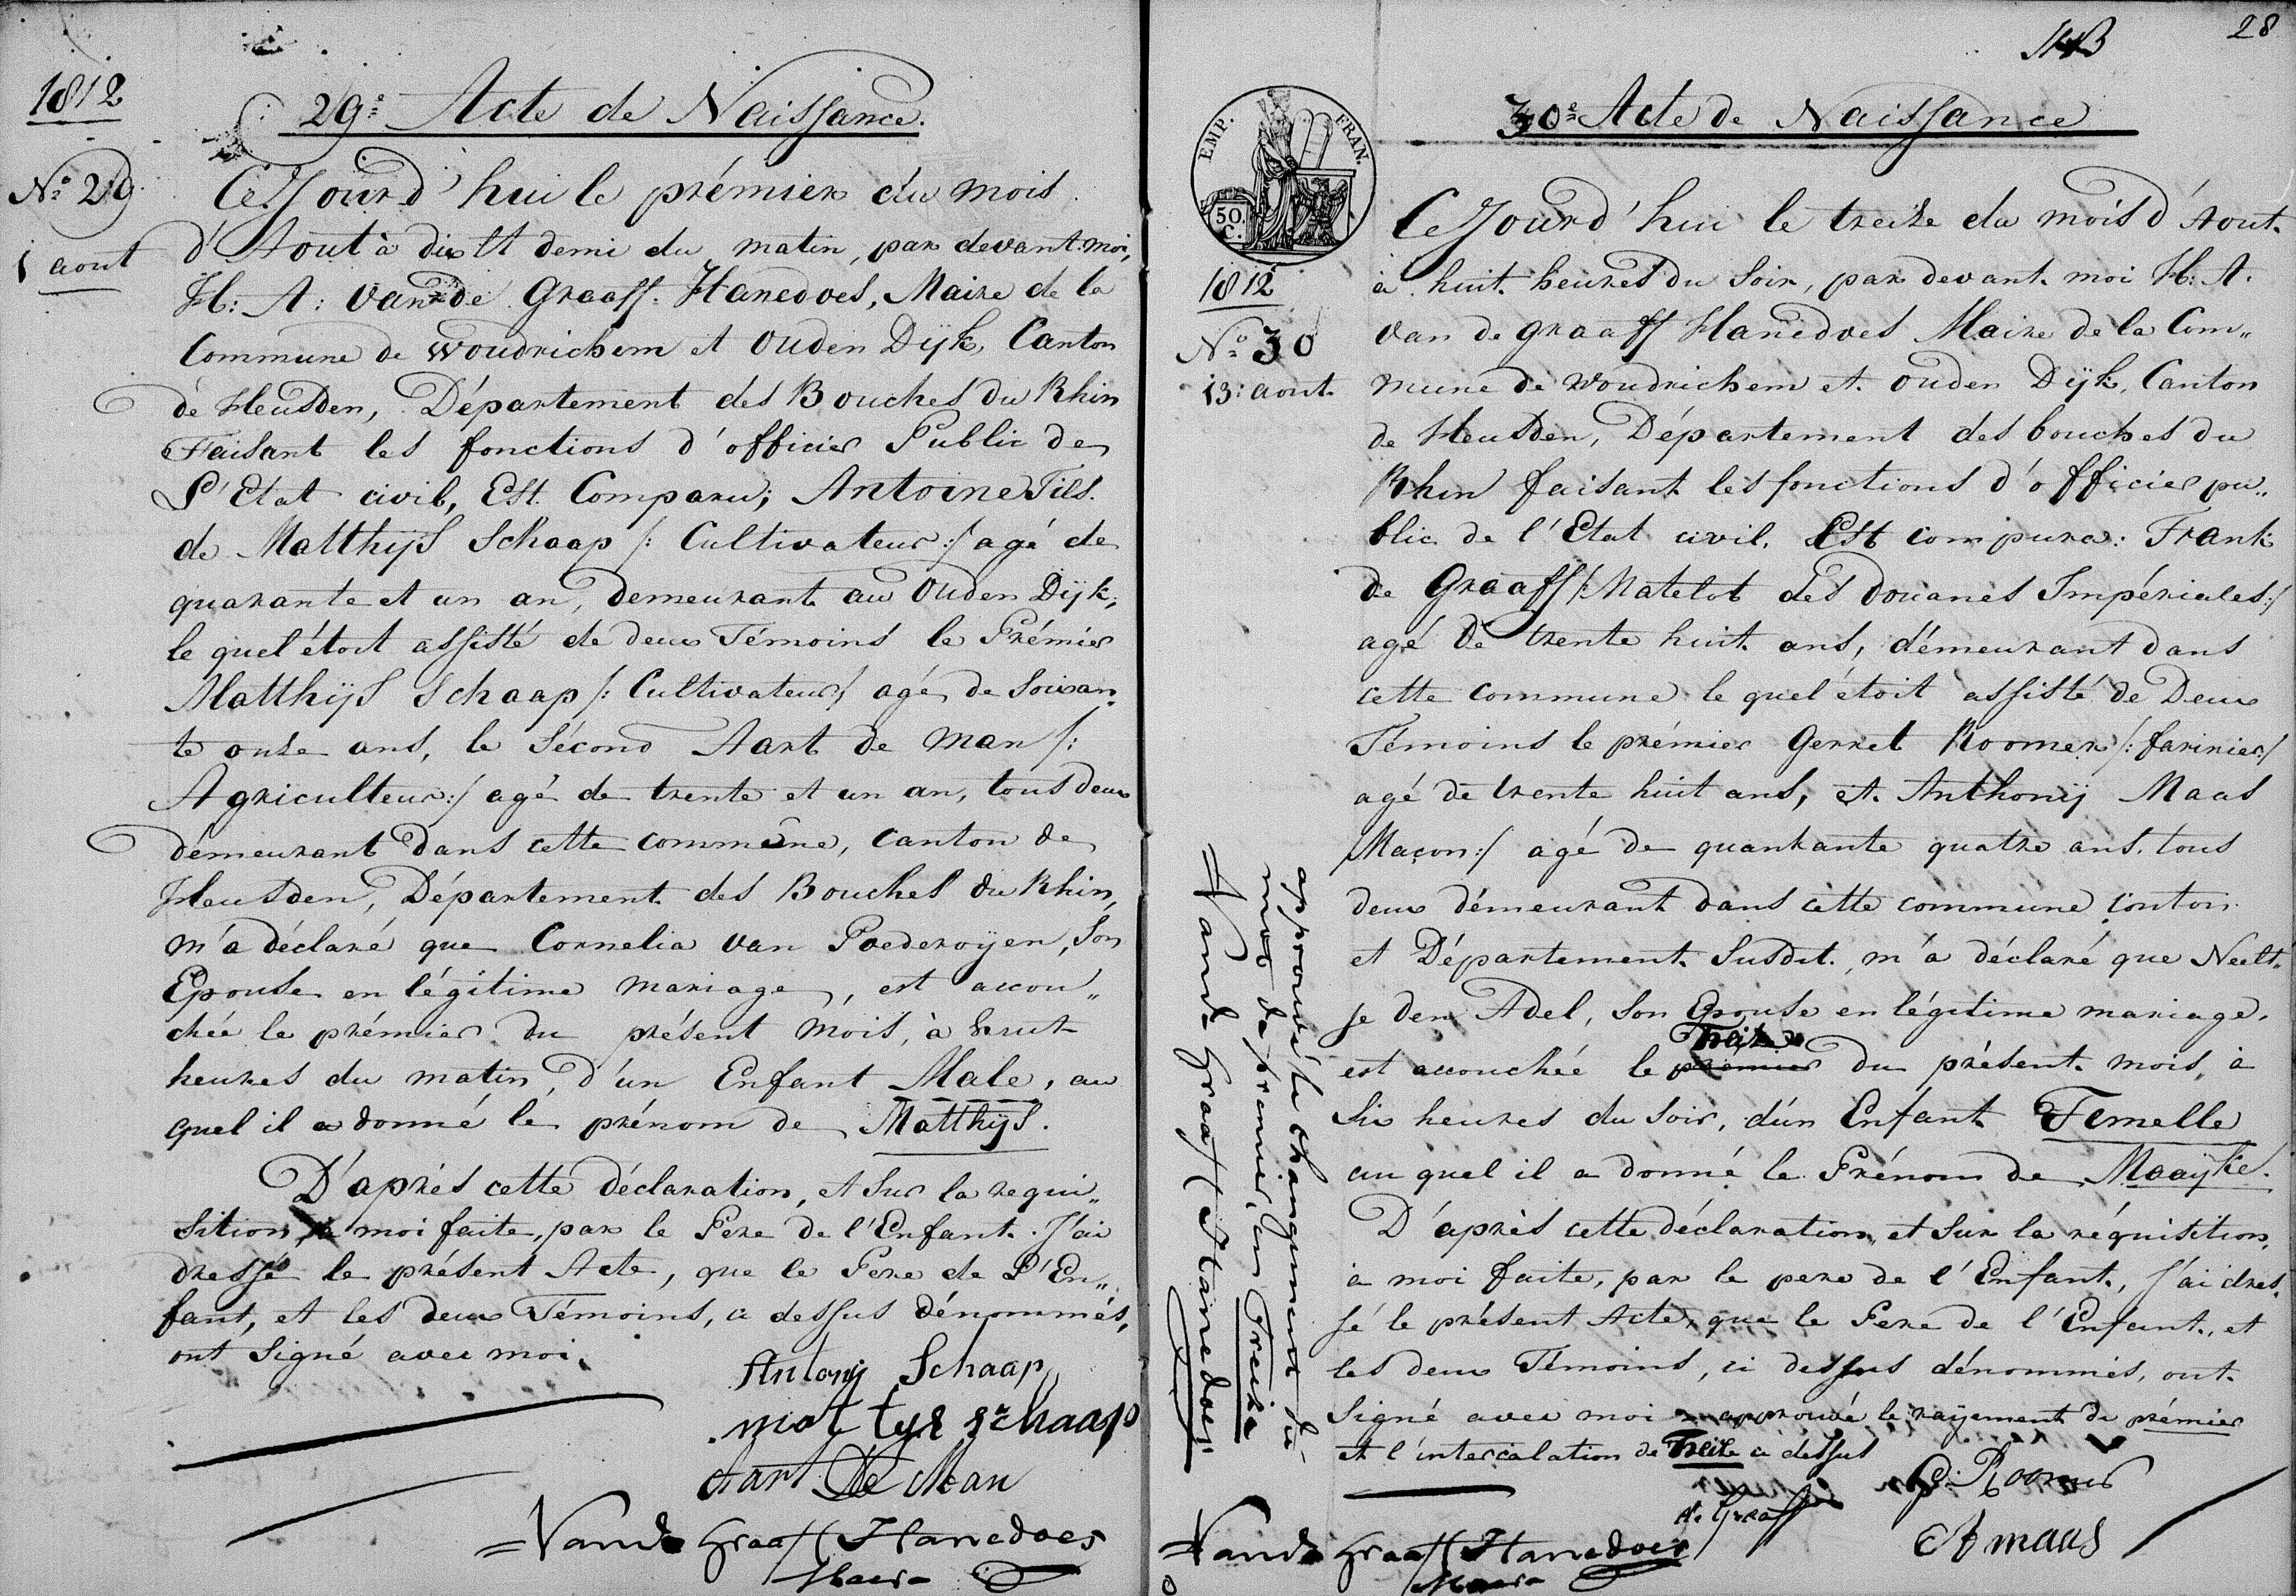 1812
29e Acte de Naissance.
No 29
1 aout
Ce Jourd'hui le prémier du mois
d'Aout à dix et demi du matin, par devant moi,
H: A: van de Graaff Hanedoes, Maire de la
Commune de Woudrichem et Ouden Dijk, Canton
de Heusden, Département des Bouches du Rhin
Faisant les fonctions d'officier Public de
L'Etat civil, Est Comparu; Antoine Fils
de Matthijs Schaap /: Cultivateur :/ agé de
quarante et un an, demeurant au Ouden Dijk,
le quel étoit assisté de deux Témoins le Prémier
Matthijs Schaap /: Cultivateur/ agé de soixan
te onze ans, le sécond Aart de Man /:
Agriculteur :/ agé de trente et un an, tous deux
démeurant dans cette commune, canton de
Heusden, Département des Bouches du Rhin,
m'a déclaré que Cornelia van Poederoijen, son
Epouse en légitime mariage, est accou„
chée le prémier du présent mois, à huit
heures du matin, d'un Enfant Male, au
quel il a donné le prénom de Matthijs.
D'aprés cette déclaration, et sur la requi„
sition à moi faite, par le Pere de l'Enfant. J'ai
dressé le présent Acte, que le Pere de L'En„
fant, et les deux Témoins, ci dessus dénommés,
ont signé avec moi.
Antonij Schaap
mat tys schaap
Aart De Man
Vande Graaff Hanedoes
Maire
28
30e Acte de Naissance
EMP. FRAN.
50. C.
1812
No 30
13: aout
Ce Jourd'hui le treize du mois d'Aout
à huit heures du soir, par devant moi H: A.
van de graaff Hanedoes Maire de la Com„
mune de Woudrichem et Ouden Dijk, Canton
de Heusden, Département des bouches du
Rhin faisant les fonctions d'officier pu„
blic de l'Etat civil, Est compura: Frank
de Graaff /: Matelot des douanes Impériales :/
agé de trente huit ans, démeurant dans
cette commune le quel étoit assisté de Deux
Témoins le prémier Gerret Roomer /: farinier/
agé de trente huit ans, et Anthonij Maas
Maçon :/ agé de quarante quatre ans, tous
deux démeurant dans cette commune conton
et Département susdit, m'a déclaré que Neelt„
je den Adel, son Epouse en légitime mariage,
Treize
est accouchée le premier du présent mois, à
six heures du soir, d'un Enfant Femelle
au quel il a donné le Prénom de Maaijke.
D'après cette déclaration, et sur la réquisition,
à moi faite, par le pere de l'Enfant, J'ai dres„
sé le présent Acte, que le Pere de l'Enfant, et
les deux Témoins, ci dessus dénommés, ont
signé avec moi approuvé le raijement du prémier
et l'intercalation de Treize ci dessus
G: Roomer
de Graaff
A maas
Vande Graaff Hanedoes
Maire
approuvé le changement du
mot de premier, en Treize
Vande Graaff Hanedoes